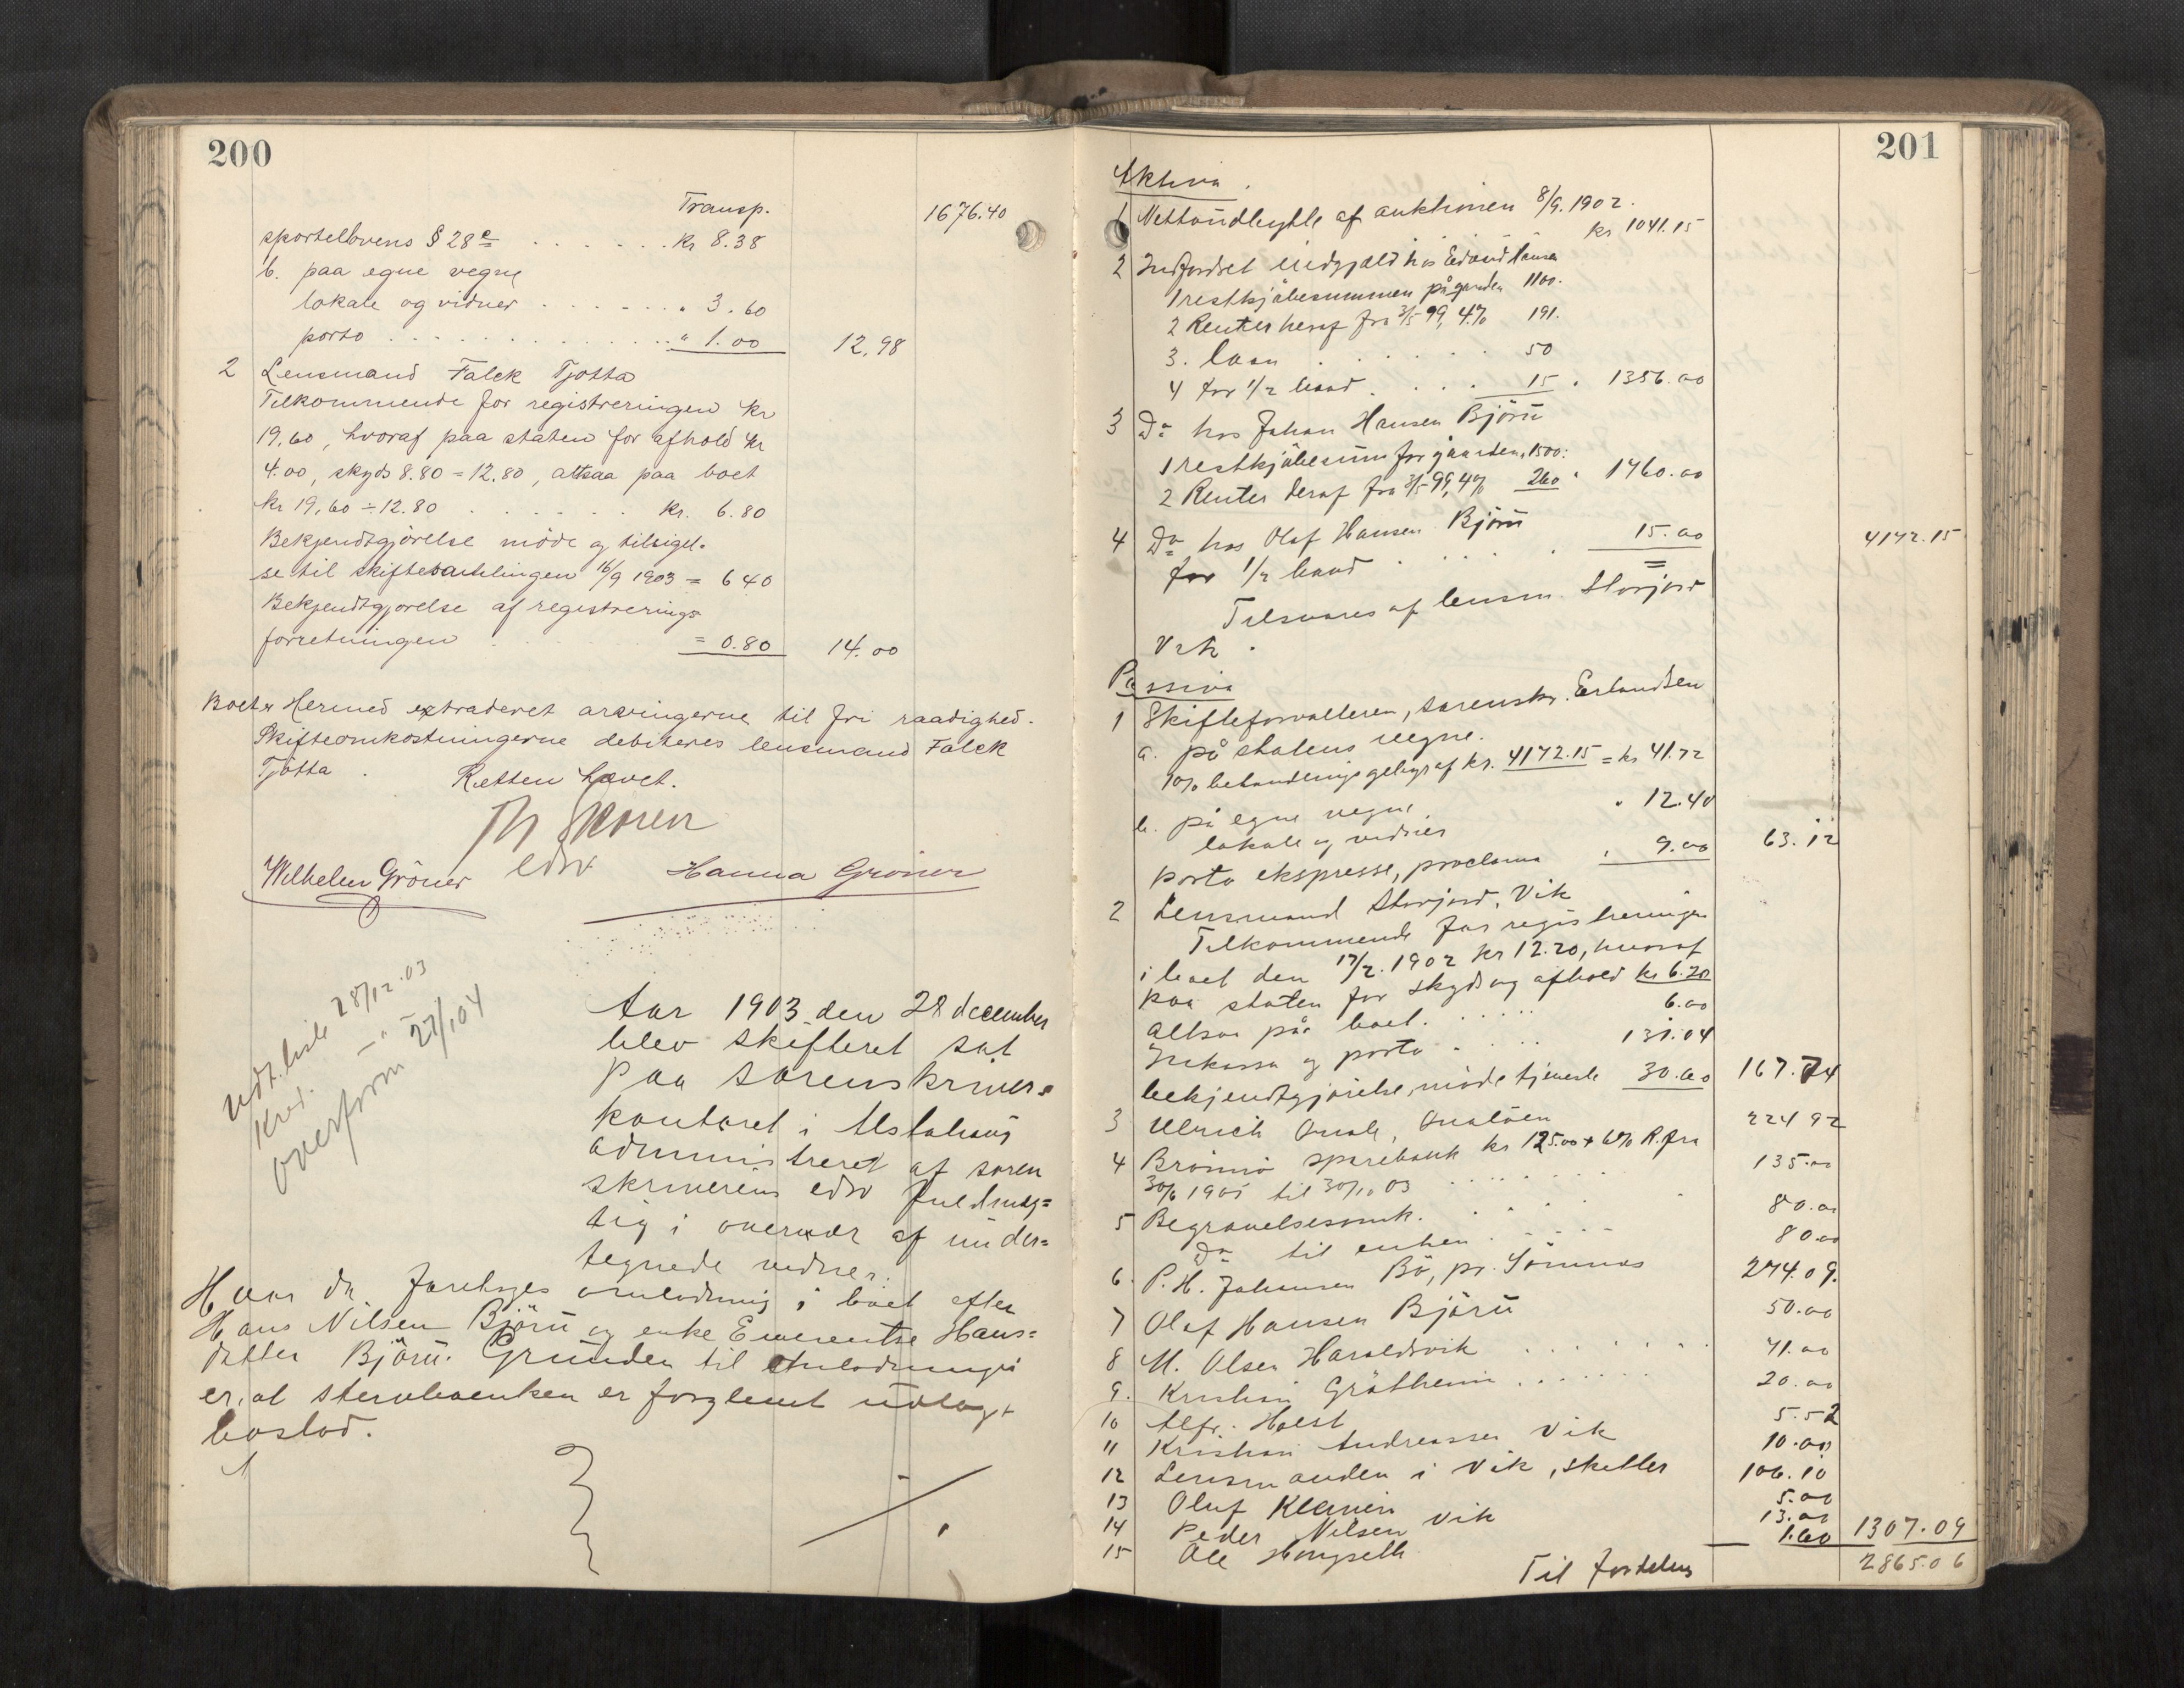 200
Transp. 1676.40
sportellovens § 28e . . . . . . . kr 8.38
b. paa egne vegne
lokale og vidner . . . . . . . " 3.60
porto . . . . . . . . . . . . . . " 1.00 12.98
2 Lensmand Falck Tjøtta
Tilkommende for registreringen kr
19,60, hvoraf paa staten for afhold kr
4.00, skyds 8.80 = 12.80, altsaa paa boet
kr 19,60 ÷ 12.80 . . . . . . kr. 6.80
Bekjendtgjørelse møde og tilsigel-
se til skiftesamlingen 16/9 1903 = 6 40
Bekjendtgjørelse af registrerings
forretningen = 0.80 14.00
Boet er Hermed extraderet arvingerne til fri raadighed.
Skifteomkostningerne debiteres lensmand Falck
Tjøtta. Retten hævet.
Th Skoren
edsv
Wilhelm Gröner Hanna Gröner
Udt. liste 28/12.03
Kred. -"-
overform 27/1 04
Aar 1903 den 28 december
blev skifteret sat
paa sorenskriver-
kontoret i Alstahaug
administreret af soren
skriverens edsv fuldmæg=
tig i overvær af under=
tegnede vidner.
Hvor da foretoges omlodning i boet efter
Hans Nilsen Björü og enke Emerentse Hans=
datter Björü. Grunden til omlodningen
er, at sterboenken er forglemt udlagt
boslod.
201
Aktiva.
1 Nettoudbytte af auktionen 8/9.1902.
kr 1041.15
2 Indfordret udgjæld hos Edvard Hansen
1 restkjøbesummen på gaarden 1100.
2 Renter heraf fra 3/5 99, 4% 191.
3. laan . . . . . . 50
4 for 1/2 baad . . . . 15 " 1356.00
3 Do hos Johan Hansen Björü
1 restkjøbesum for gaarden 1500:
2 Renter deraf fra 3/5 99, 4% 260 " 1760.00
4 Do hos Olaf Hansen Björü
for 1/2 baad . . . . 15.00 4172.15
Tilsvares af lensm. Storjord
Vik.
Passiva
1 Skifteforvalteren, sorenskr. Erlandsen
a. på statens vegne.
1% behandlingsgebyr af kr. 4172.15 = kr 41.72
b. på egne vegne
lokale og vidner " 12.40
porto ekspresse, proclama " 9.00 63.12
2 Lensmand Storjord, Vik
Tilkommende for registreringen
i boet den 17/2.1902 kr 12.20, hvoraf
paa staten for skyds og afhold kr 6.20
altsaa på boet . . . . . 6.00
Inkasso og porto . . . . 131.04
bekjendtgjørelse, møde tjeneste 30.60 167.74
3 Ulrich Quale, Qualöen 224 92
4 Brönnö sparebank kr 125.00 + 6% R. fra
30/6 1901 til 30/10 03 . . . . . . 135.00
5 Begravelsesomk. . . . . 80.00
Do til enken . . . . 80.00
6. P. H. Johansen Bö, pr. Sömnes 274.09.
7 Olaf Hansen Björü 50.00
8 M. Olsen Haroldsvik . . . . . . 41.00
9. Kristian Gröttheim . . . . . . 20.00
10 Alfr. Holst 5.52
11 Kristian Andreassen Vik 10.00
12 Lensmanden i Vik, skatter 106.10
13 Oluf Klevin 5.00
14 Peder Nilsen Vik 13.00
15 Ole Hongseth 1.60 1307.09
Til fordeling 2865.06